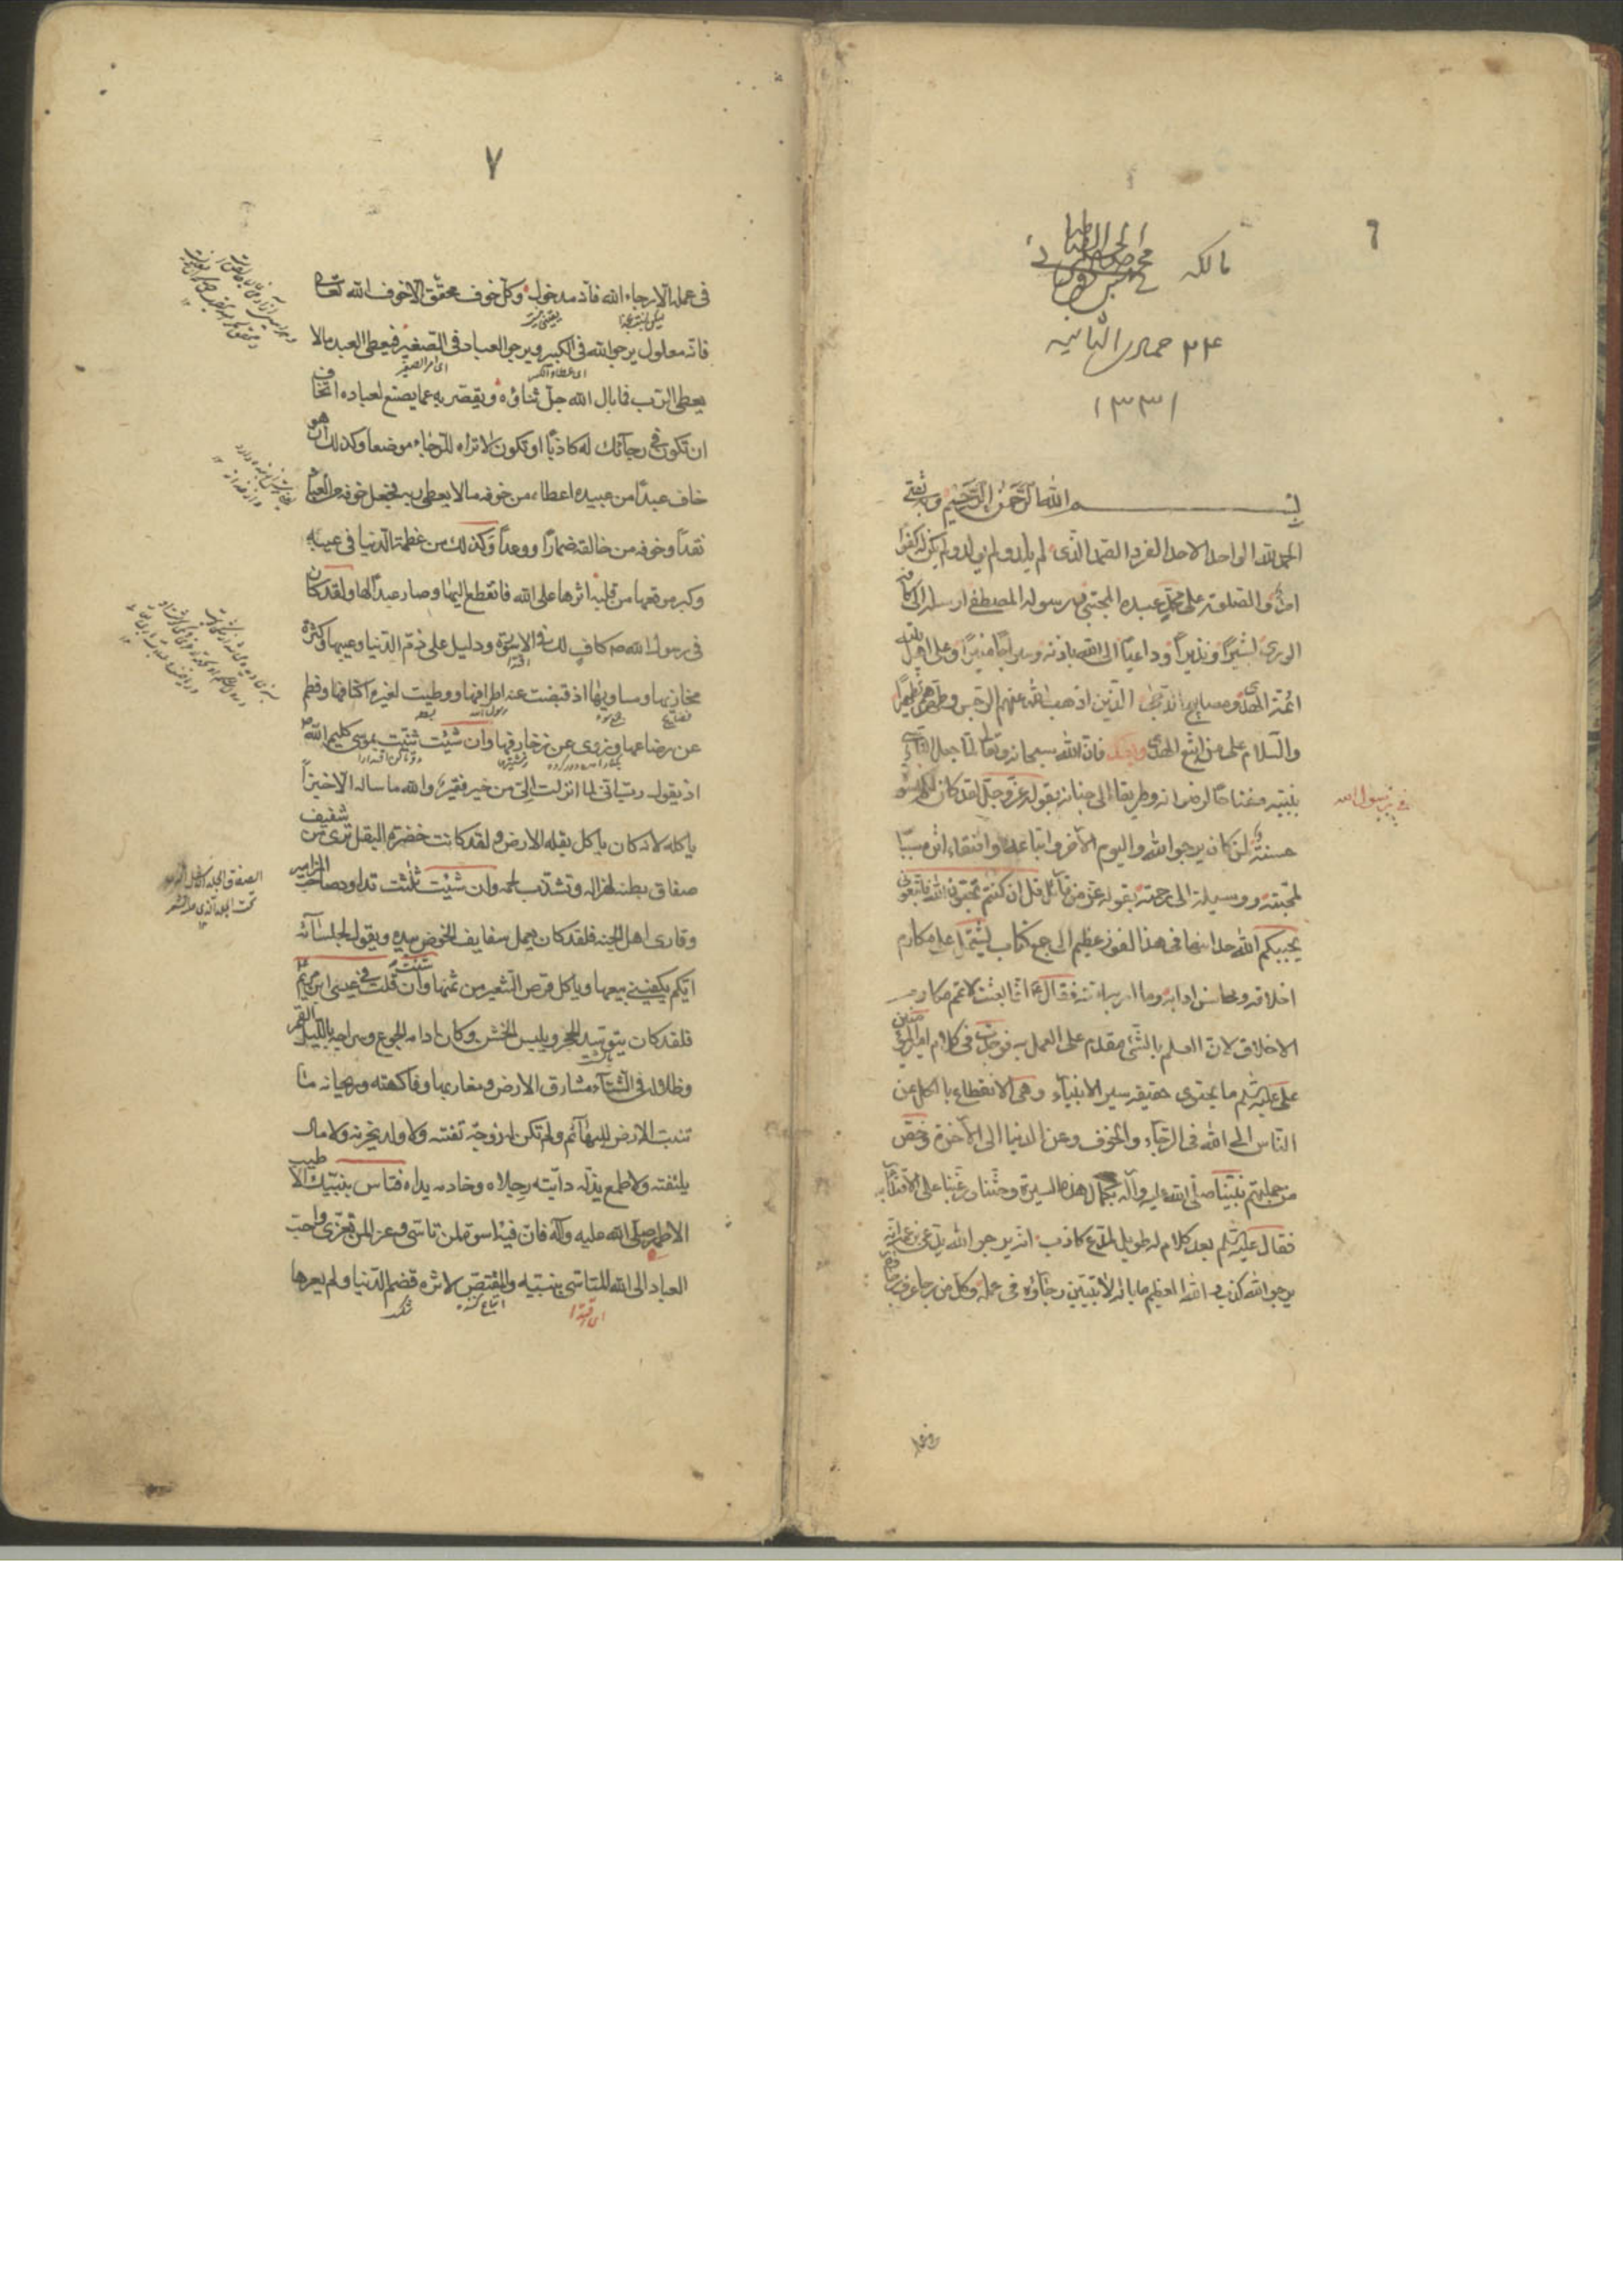 ٦
مالكه
٢٤ جمادى الثانيه
١٣٣١
بسم الله الرحمن الرحيم وبه ثقتى
الحمد لله الواحد الاحد الفرد الصمد الذى لم يلد ولم يولد ولم يكن له كفوًا
احد والصلوة على محمد عبده المجتبى ورسوله المصطفى ارسله الى كافة
الورى بشيرًا ونذيرًا وداعيًا الى الله باذنه وسراجًا منيرًا وعلى اهل بيته
ائمة الهدى ومصابيح الدجى الذين اذهب الله عنهم الرجس وطهرهم تطهيرًا
والسلام على من اتبع الهدى وبعد فان الله سبحانه وتعالى لما جعل التاسى
بنبيه مفتاحًا لرضوانه وطريقا الى جنانه بقوله عز وجل لقد كان لكم اسوة
فى رسول الله
حسنة لمن كان يرجو الله واليوم الآخر واتباعه واقتفاء اثره سببًا
لمحبته ووسيلة الى رحمته بقوله عز من قائل قل ان كنتم تحبون الله فاتبعونى
يحببكم الله حدانى هذا الفوز العظيم الى جمع كتاب يشتمل على مكارم
اخلاقه ومحاسن ادابه وما امر به امته فقال انما بعثت لاتمم مكارم
الاخلاق لان العلم بالشئ مقدم على العمل به فوجدت فى كلام امير المؤمنين
على عليه السلم ما يحتوى حقيقة سير الانبياء وهى الانقطاع بالكل عن
الناس الى الله فى الرجاء والخوف وعن الدنيا الى الآخرة وخص
من جملتهم نبينا صلى الله عليه وآله بكمال هذه السيرة وحثنا ورغبنا على الاقتداء به
فقال عليه السلم بعد كلام له طويل لمدع كاذب انه يرجو الله يدعى بزعمه انه
يرجو الله كذب والله العظيم ما باله لا يتبين رجاؤه فى عمله وكل من رجا عرف رجاؤه
٧
فى عمله الا رجاء الله فانه مدخول وكل خوف محقق الا خوف الله تعالى
فانه معلول يرجو الله فى الكبير ويرجو العباد فى الصغير فيعطى العبد ما لا
يعطى الرب فما بال الله جل ثناؤه ويقصر به عما يصنع لعباده اتخاف
ان تكون فى رجائك له كاذبًا او تكون لا تراه للرجاء موضعا وكذلك ان هو
خاف عبدًا من عبيده اعطاه من خوفه ما لا يعطى ربه فجعل خوفه من العباد
نقدًا وخوفه من خالقه ضمارًا ووعدًا وكذلك من عظمت الدنيا فى عينه
وكبر موقعها من قلبه اثرها على الله فانقطع اليها وصار عبدًا لها ولقد كان
فى رسول الله ص كاف لك فى الاسوة ودليل على ذم الدنيا وعيبها وكثرة
مخازيها ومساويها اذ قبضت عنه اطرافها ووطيت لغيره اكنافها وفطم
عن رضاعها وزوى عن زخارفها وان شئت ثنيت بموسى كليم الله
اذ يقول رب انى لما انزلت الى من خير فقير والله ما ساله الا خبزًا
ياكله لانه كان ياكل بقلة الارض ولقد كانت خضرة البقل ترى من شفيف
صفاق بطنه لهزاله وتشذب لحمه وان شئت ثلثت بداود صاحب المزامير
وقارى اهل الجنه فلقد كان يعمل سفايف الخوص بيده ويقول لجلسائه
ايكم يكفينى بيعها وياكل قرص الشعير من ثمنها وان شئت قلت فى عيسى ابن مريم
فلقد كان يتوسد الحجر ويلبس الخشن وكان ادامه الجوع وسراجه بالليل القمر
وظلاله فى الشتاء مشارق الارض ومغاربها وفاكهته وريحانه ما
تنبت الارض للبهائم ولم تكن له زوجة تفتنه ولا ولد يحزنه ولا مال
يلفته ولا طمع يذله دابته رجلاه وخادمه يداه فتاس بنبيك الاطيب
الاطهر صلى الله عليه وآله فان فيه اسوة لمن تاسى وعزاء لمن تعزى واحب
العباد الى الله المتاسى بنبيه والمقتص لاثره قضم الدنيا ولم يعرها
اى اقتدا
الصفاق الجلد الاسفل الذى
تحت الجلد الذى عليه الشعر